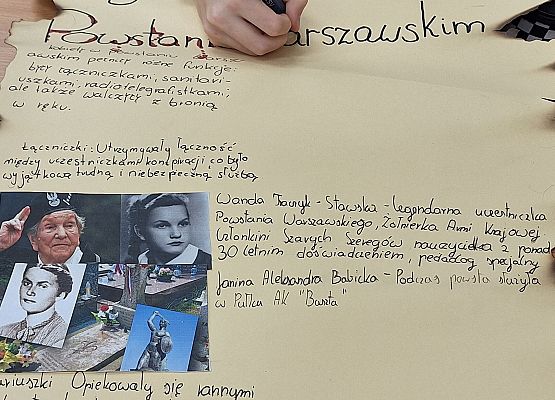 Powstaniu Warszawskim
kobiety w powstaniu warsz-
awskim pełniły różne funkcje:
były łączniczkami, sanitari-
uszkami, radiotelegrafistkami,
ale także walczyły z bronią
w ręku.
Łączniczki: Utrzymywały łączność
między uczestniczkami konspiracji co było
wyjątkową trudną i niebezpieczną służbą
Wanda Traczyk-Stawska - legendarna uczestniczka
Powstania Warszawskiego, Żołnierka Armi Krajowej
Członkini Szarych Szeregów nauczycielka z ponad
30 letnim doświadczeniem, pedagog specjalny
Janina Aleksandra Babicka - Podczas powsta służyła
w Pułku AK "Baszta"
ariuszki Opiekowały się rannymi